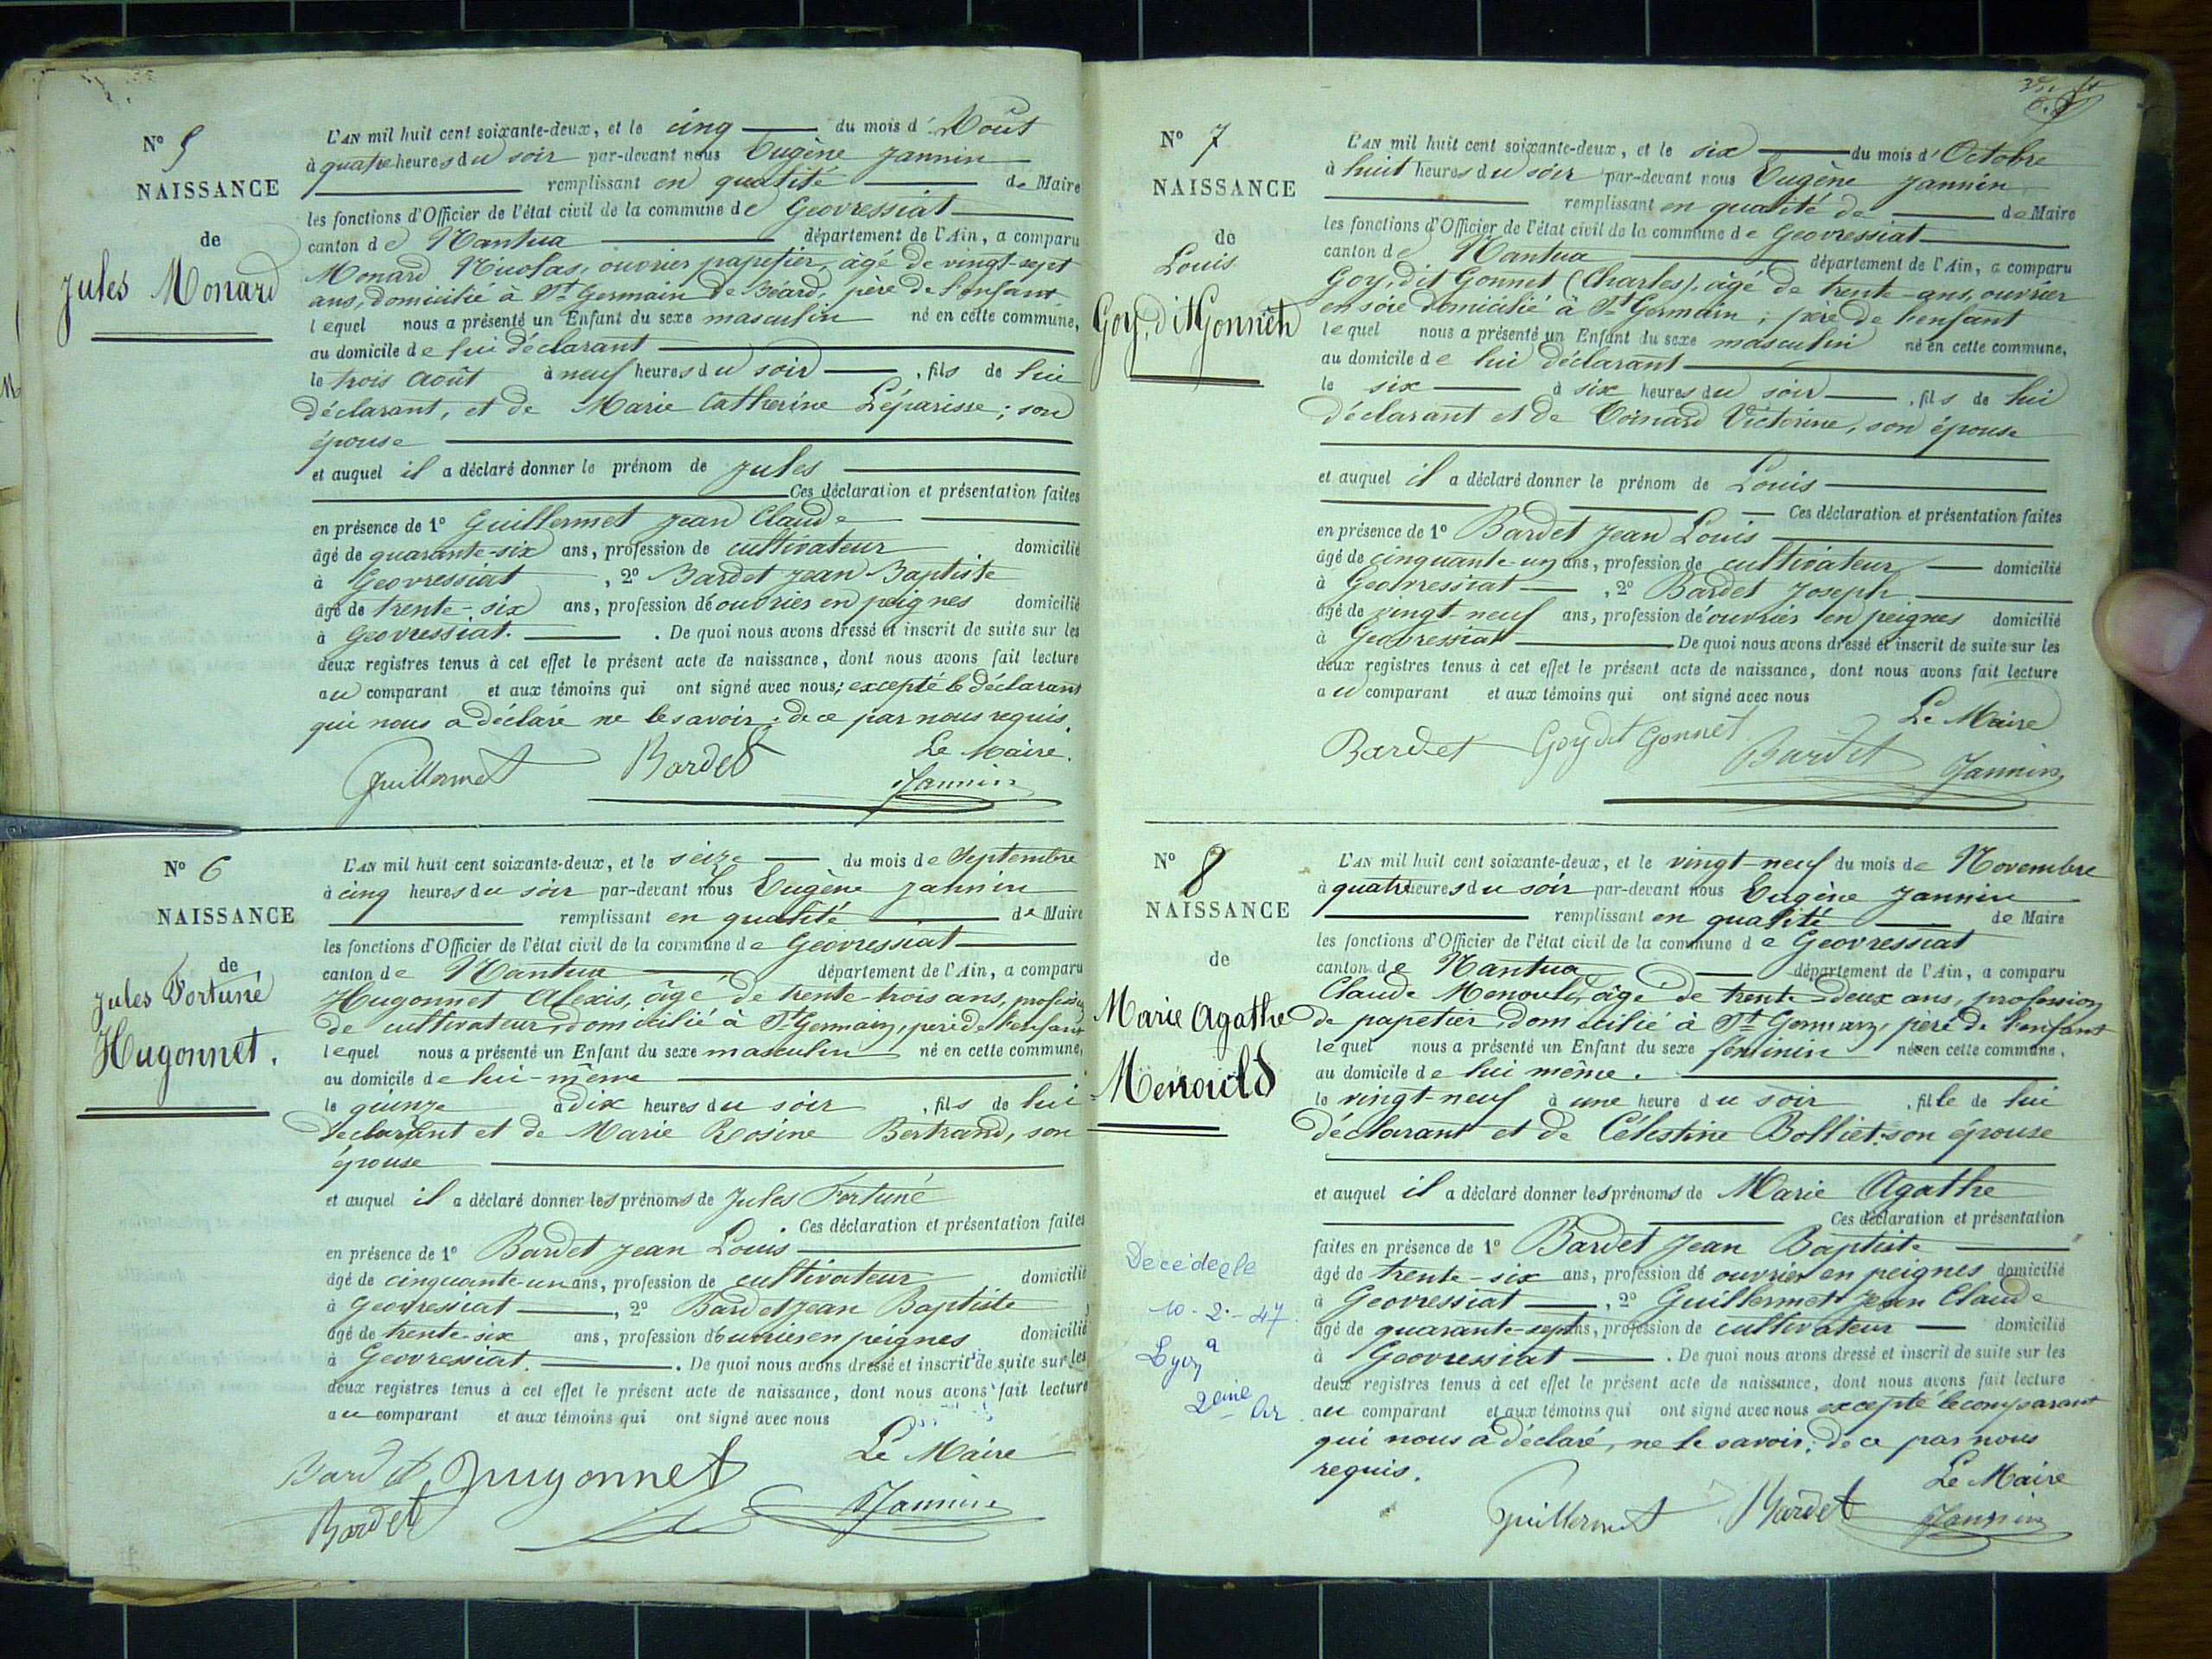 N° 5
NAISSANCE
de
Jules Monard
L'AN mil huit cent soixante-deux, et le cinq du mois d'Août
à quatre heures du soir par-devant nous Eugène Jannin
remplissant en qualité de Maire
les fonctions d'Officier de l'état civil de la commune de Geovressiat
canton de Nantua département de l'Ain, a comparu
Monard Nicolas, ouvrier papetier, âgé de vingt-sept
ans, domicilié à St Germain de Béard, père de l'enfant
lequel nous a présenté un Enfant du sexe masculin né en cette commune,
au domicile de lui déclarant
le trois Août à neuf heures du soir, fils de lui
déclarant, et de Marie Catherine Léparisse; son
épouse
et auquel il a déclaré donner le prénom de Jules
Ces déclaration et présentation faites
en présence de 1° Guillermet Jean Claude
âgé de quarante-six ans, profession de cultivateur domicilié
à Geovressiat, 2° Bardet Jean Baptiste
âgé de trente-six ans, profession d'ouvrier en peignes domicilié
à Geovressiat. De quoi nous avons dressé et inscrit de suite sur les
deux registres tenus à cet effet le présent acte de naissance, dont nous avons fait lecture
au comparant et aux témoins qui ont signé avec nous; excepté le déclarant
qui nous a déclaré ne le savoir; de ce par nous requis.
Le Maire.
Guillermet Bardet Jannin
N° 6
NAISSANCE
de
Jules Fortuné
Hugonnet.
L'AN mil huit cent soixante-deux, et le seize du mois de Septembre
à cinq heures du soir par-devant nous Eugène Jannin
remplissant en qualité de Maire
les fonctions d'Officier de l'état civil de la commune de Geovressiat
canton de Nantua département de l'Ain, a comparu
Hugonnet Alexis, âgé de trente-trois ans, profession
de cultivateur, domicilié à St Germain, père de l'enfant
lequel nous a présenté un Enfant du sexe masculin né en cette commune,
au domicile de lui-même
le quinze à dix heures du soir, fils de lui
déclarant et de Marie Rosine Bertrand, son
épouse
et auquel il a déclaré donner les prénoms de Jules Fortuné
Ces déclaration et présentation faites
en présence de 1° Bardet Jean Louis
âgé de cinquante-un ans, profession de cultivateur domicilié
à Geovressiat, 2° Bardet Jean Baptiste
âgé de trente-six ans, profession d'ouvrier en peignes domicilié
à Geovressiat. De quoi nous avons dressé et inscrit de suite sur les
deux registres tenus à cet effet le présent acte de naissance, dont nous avons fait lecture
au comparant et aux témoins qui ont signé avec nous
Le Maire
Bardet Hugonnet
Bardet Jannin
N° 7
NAISSANCE
de
Louis
Goy, dit Gonnet
L'AN mil huit cent soixante-deux, et le six du mois d'Octobre
à huit heures du soir par-devant nous Eugène Jannin
remplissant en qualité de de Maire
les fonctions d'Officier de l'état civil de la commune de Geovressiat
canton de Nantua département de l'Ain, a comparu
Goy, dit Gonnet (Charles), âgé de trente-ans, ouvrier
en soie domicilié à St Germain; père de l'enfant
lequel nous a présenté un Enfant du sexe masculin né en cette commune,
au domicile de lui déclarant
le six à six heures du soir, fils de lui
déclarant et de Victorine, son épouse
et auquel il a déclaré donner le prénom de Louis
Ces déclaration et présentation faites
en présence de 1° Bardet Jean Louis
âgé de cinquante-un ans, profession de cultivateur domicilié
à Geovressiat, 2° Bardet Joseph
âgé de vingt-neuf ans, profession d'ouvrier en peignes domicilié
à Geovressiat De quoi nous avons dressé et inscrit de suite sur les
deux registres tenus à cet effet le présent acte de naissance, dont nous avons fait lecture
au comparant et aux témoins qui ont signé avec nous
Le Maire
Bardet Goy dit Gonnet Bardet Jannin
N° 8
NAISSANCE
de
Marie Agathe
Menould
Decedee le
10-2-47
a
Lyon
2eme Ar
L'AN mil huit cent soixante-deux, et le vingt-neuf du mois de Novembre
à quatre heures du soir par-devant nous Eugène Jannin
remplissant en qualité de Maire
les fonctions d'Officier de l'état civil de la commune de Geovressiat
canton de Nantua département de l'Ain, a comparu
Claude Menould, âgé de trente-deux ans, profession
de papetier, domicilié à St Germain, père de l'enfant
lequel nous a présenté un Enfant du sexe féminin née en cette commune,
au domicile de lui même.
le vingt-neuf à une heure du soir, fille de lui
déclarant et de Célestine Bolliet; son épouse
et auquel il a déclaré donner les prénoms de Marie Agathe
Ces déclaration et présentation
faites en présence de 1° Bardet Jean Baptiste
âgé de trente-six ans, profession de ouvrier en peignes domicilié
à Geovressiat, 2° Guillermet Jean Claude
âgé de quarante-sept ans, profession de cultivateur domicilié
à Geovressiat. De quoi nous avons dressé et inscrit de suite sur les
deux registres tenus à cet effet le présent acte de naissance, dont nous avons fait lecture
au comparant et aux témoins qui ont signé avec nous excepté le comparant
qui nous a déclaré, ne le savoir; de ce par nous
requis.
Le Maire
Guillermet Bardet Jannin